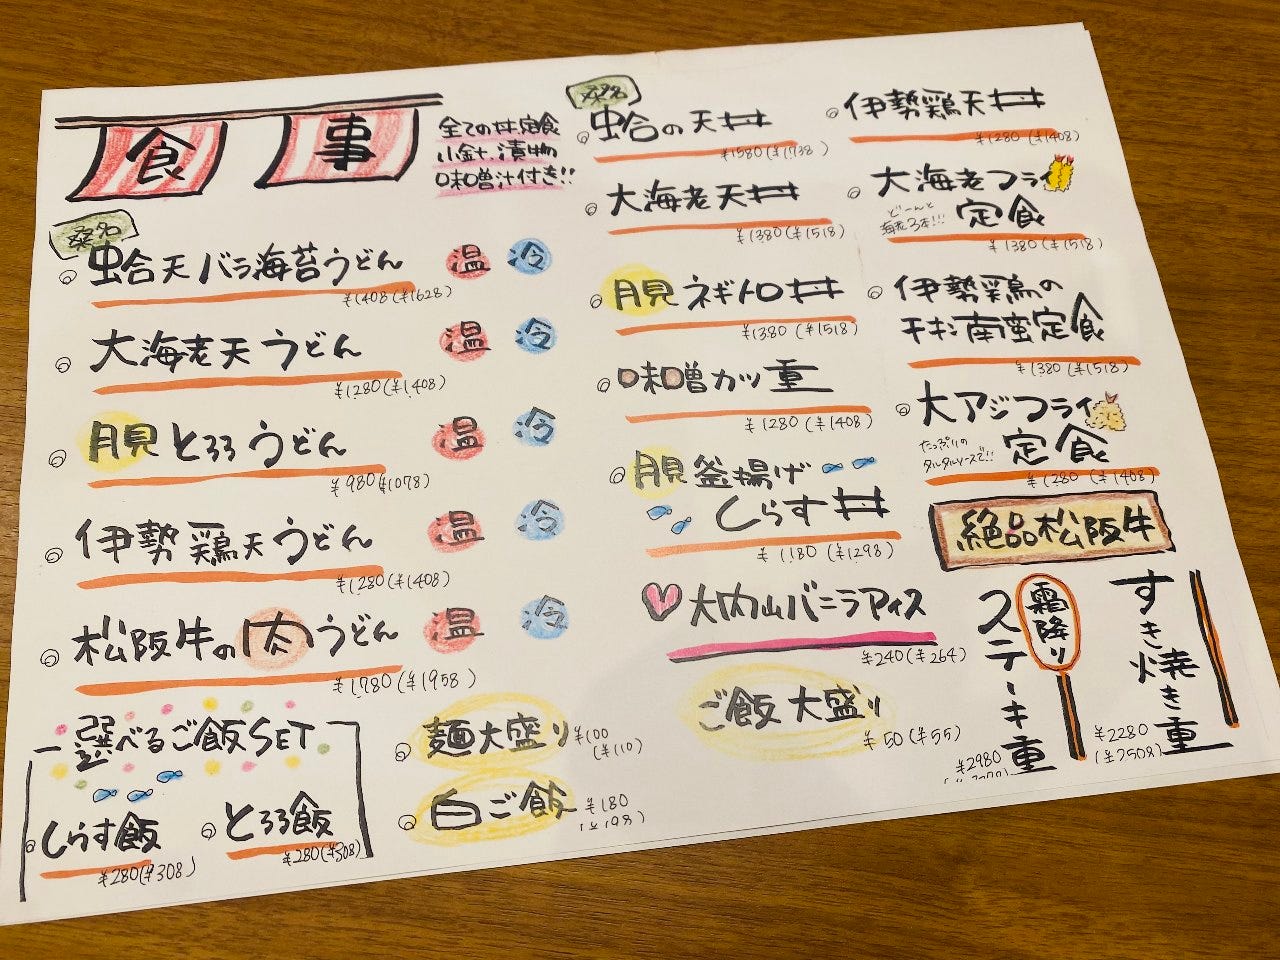 食事
全ての丼、定食
小鉢、漬物
味噌汁付き!!
桑名
蛤天バラ海苔うどん 温 冷
¥1408(¥1628)
大海老天うどん 温 冷
¥1280(¥1408)
月見とろろうどん 温 冷
¥980(¥1078)
伊勢鶏天うどん 温 冷
¥1280(¥1408)
松阪牛の肉うどん 温 冷
¥1,780(¥1958)
選べるご飯SET
しらす飯
¥280(¥308)
とろろ飯
¥280(¥308)
麺大盛り ¥100
(¥110)
白ご飯 ¥180
(¥198)
桑名
蛤の天丼
¥1580(¥1738)
大海老天丼
¥1380(¥1518)
月見ネギトロ丼
¥1380(¥1518)
味噌カツ重
¥1280(¥1408)
月見釜揚げ
しらす丼
¥1,180(¥1298)
大内山バニラアイス
¥240(¥264)
ご飯大盛り
¥50(¥55)
伊勢鶏天丼
¥1280(¥1408)
大海老フライ
どーんと
海老3本!!!
定食
¥1380(¥1518)
伊勢鶏の
チキン南蛮定食
¥1380(¥1518)
大アジフライ
たっぷりの
タルタルソースで!!
定食
¥1280(¥1408)
絶品松阪牛
すき焼き重
¥2280
(¥2508)
霜降り
ステーキ重
¥2980